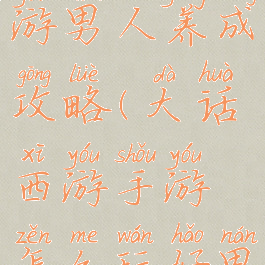 游男人养成
gōng lüè dà huà
攻略(大话
xī yóu shǒu yóu
西游手游
zěn me wán hǎo nán